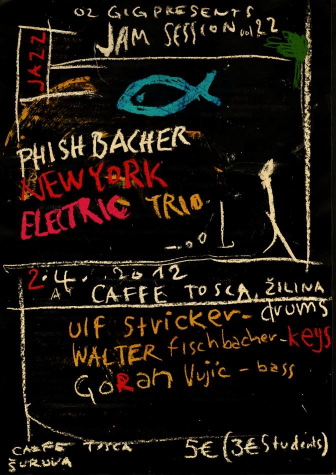 O2 GIG PRESENTS
JAM SESSION vol 22
JAZZ
PHISHBACHER
NEW YORK
ELECTRIC TRIO
2.4.2012
AT CAFFE TOSCA, ŽILINA
Ulf Stricker - drums
WALTER fischbacher - keys
GORAN Vujić - bass
CAFFE TOSCA
5€ (3€ Students)